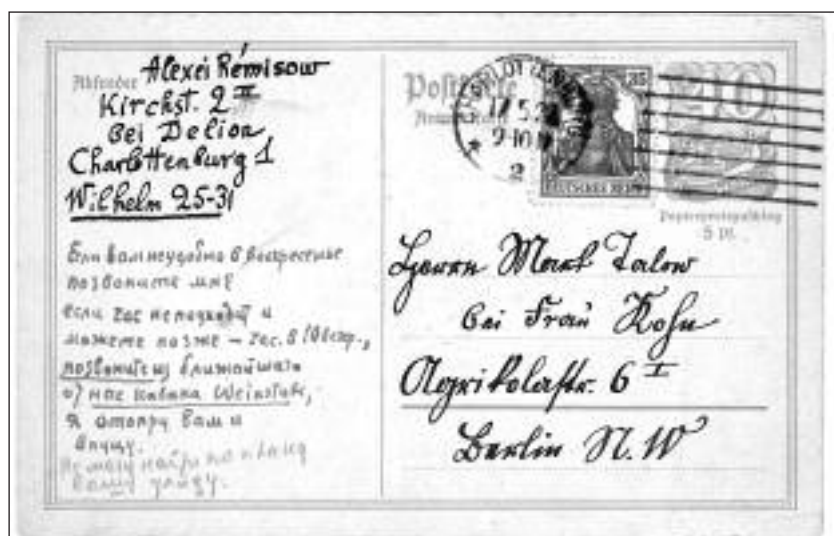 Absender Alexei Rémisow
Kirchst. 2 II
bei Delion
Charlottenburg 1
Wilhelm 25-31
Если вам неудобно в воскресенье
позвоните мне
если час неподходит и
можете позже – час. 8
позвоните из ближайшаго
от нас кабака Weinstube,
я отопру вам и
впущу.
Не могу найти на плану
вашу улицу.
Postkarte
CHARLOTTENBURG
17.5.2
9-10 N
2
35
DEUTSCHES REICH
5 Pf.
Herrn Mark Talow
bei Frau Kohn
Agrikolastr. 6 I
Berlin N.W